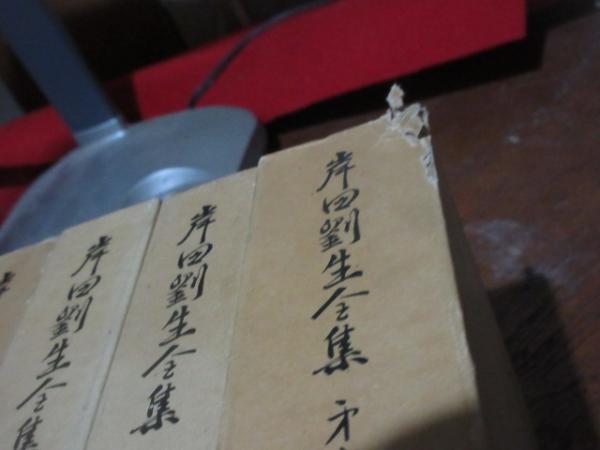 岸田劉生全集 第
岸田劉生全集
岸田劉生全集
岸